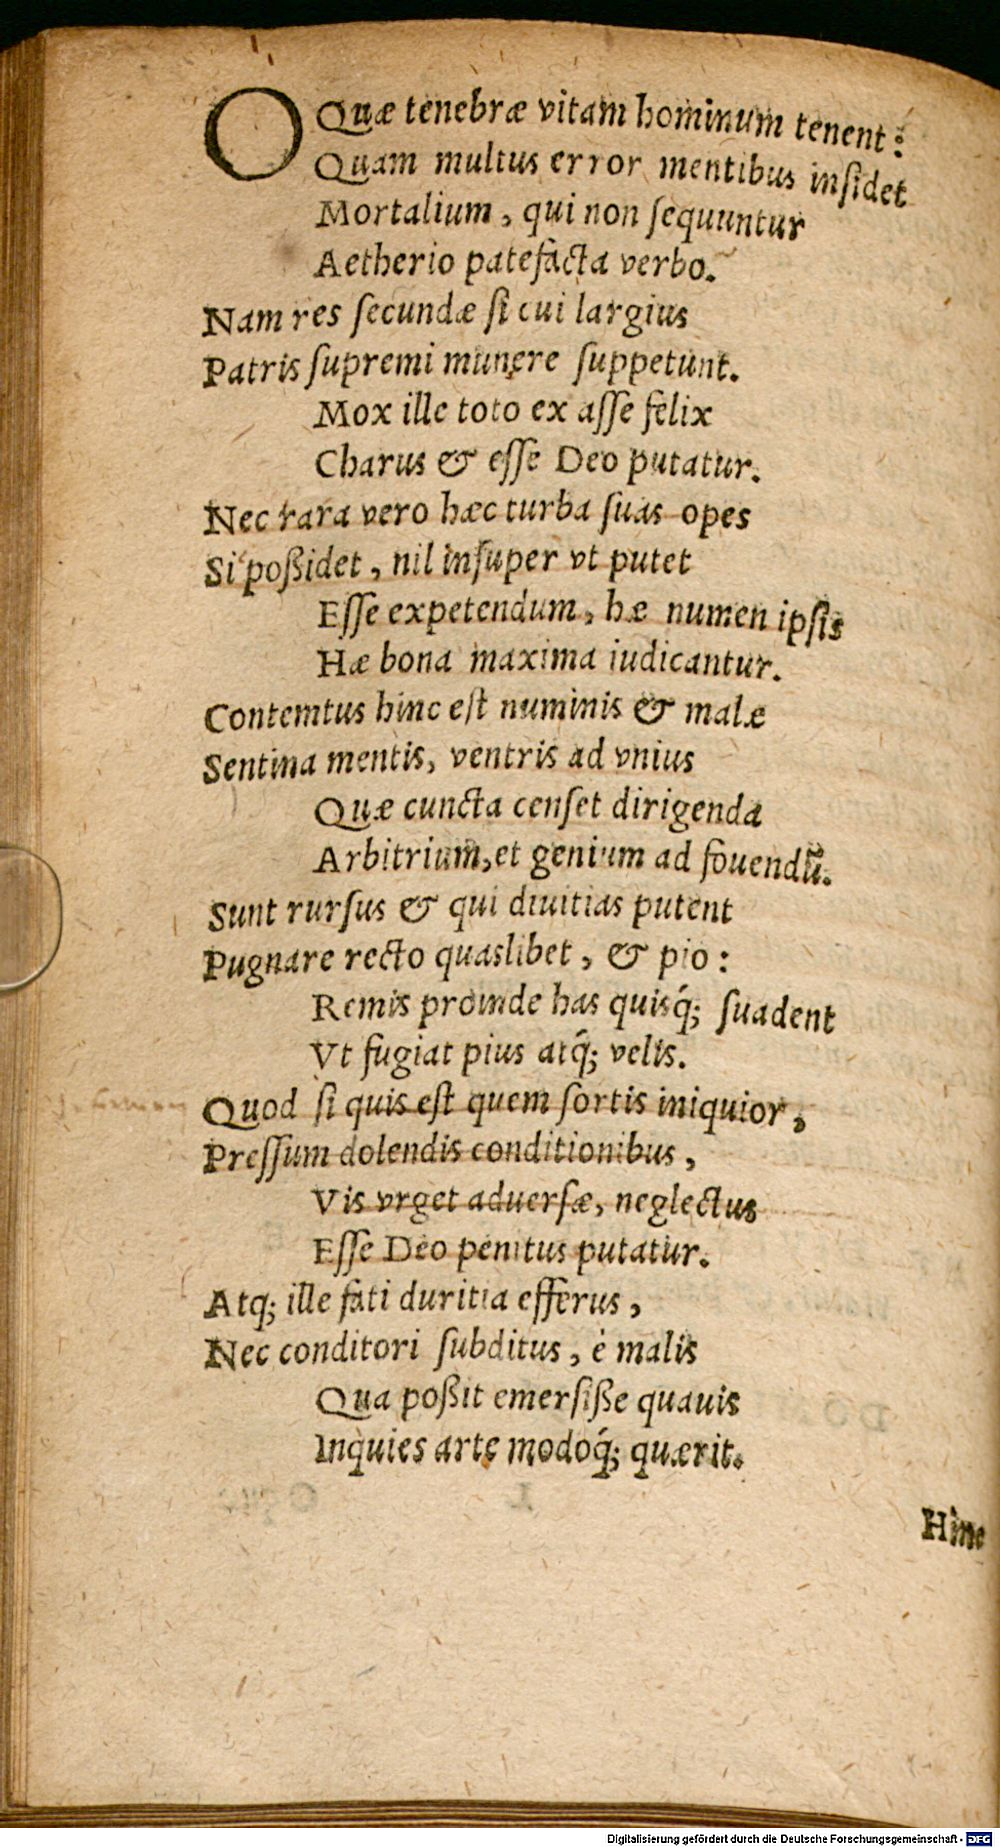 O Quæ tenebræ vitam hominum tenent:
Quam multus error mentibus insidet
Mortalium, qui non sequuntur
Aetherio patefacta verbo.
Nam res secundæ si cui largius
Patris supremi munere suppetunt.
Mox ille toto ex asse felix
Charus & esse Deo putatur.
Nec rara vero hæc turba suas opes
Si poßidet, nil insuper vt putet
Esse expetendum, hæ numen ipsis
Hæ bona maxima iudicantur.
Contemtus hinc est numinis & malæ
Sentina mentis, ventris ad vnius
Quæ cuncta censet dirigenda
Arbitrium, et genium ad fouendũ.
Sunt rursus & qui diuitias putent
Pugnare recto quaslibet, & pio:
Remis proinde has quisq́; suadent
Vt fugiat pius atq́; velis.
Quod si quis est quem sortis iniquior,
Pressum dolendis conditionibus,
Vis vrget aduersæ, neglectus
Esse Deo penitus putatur.
Atq; ille fati duritia efferus,
Nec conditori subditus, è malis
Qua poßit emersiße quauis
Inquies arte modoq́; quærit.
Hinc
Digitalisierung gefördert durch die Deutsche Forschungsgemeinschaft - DFG